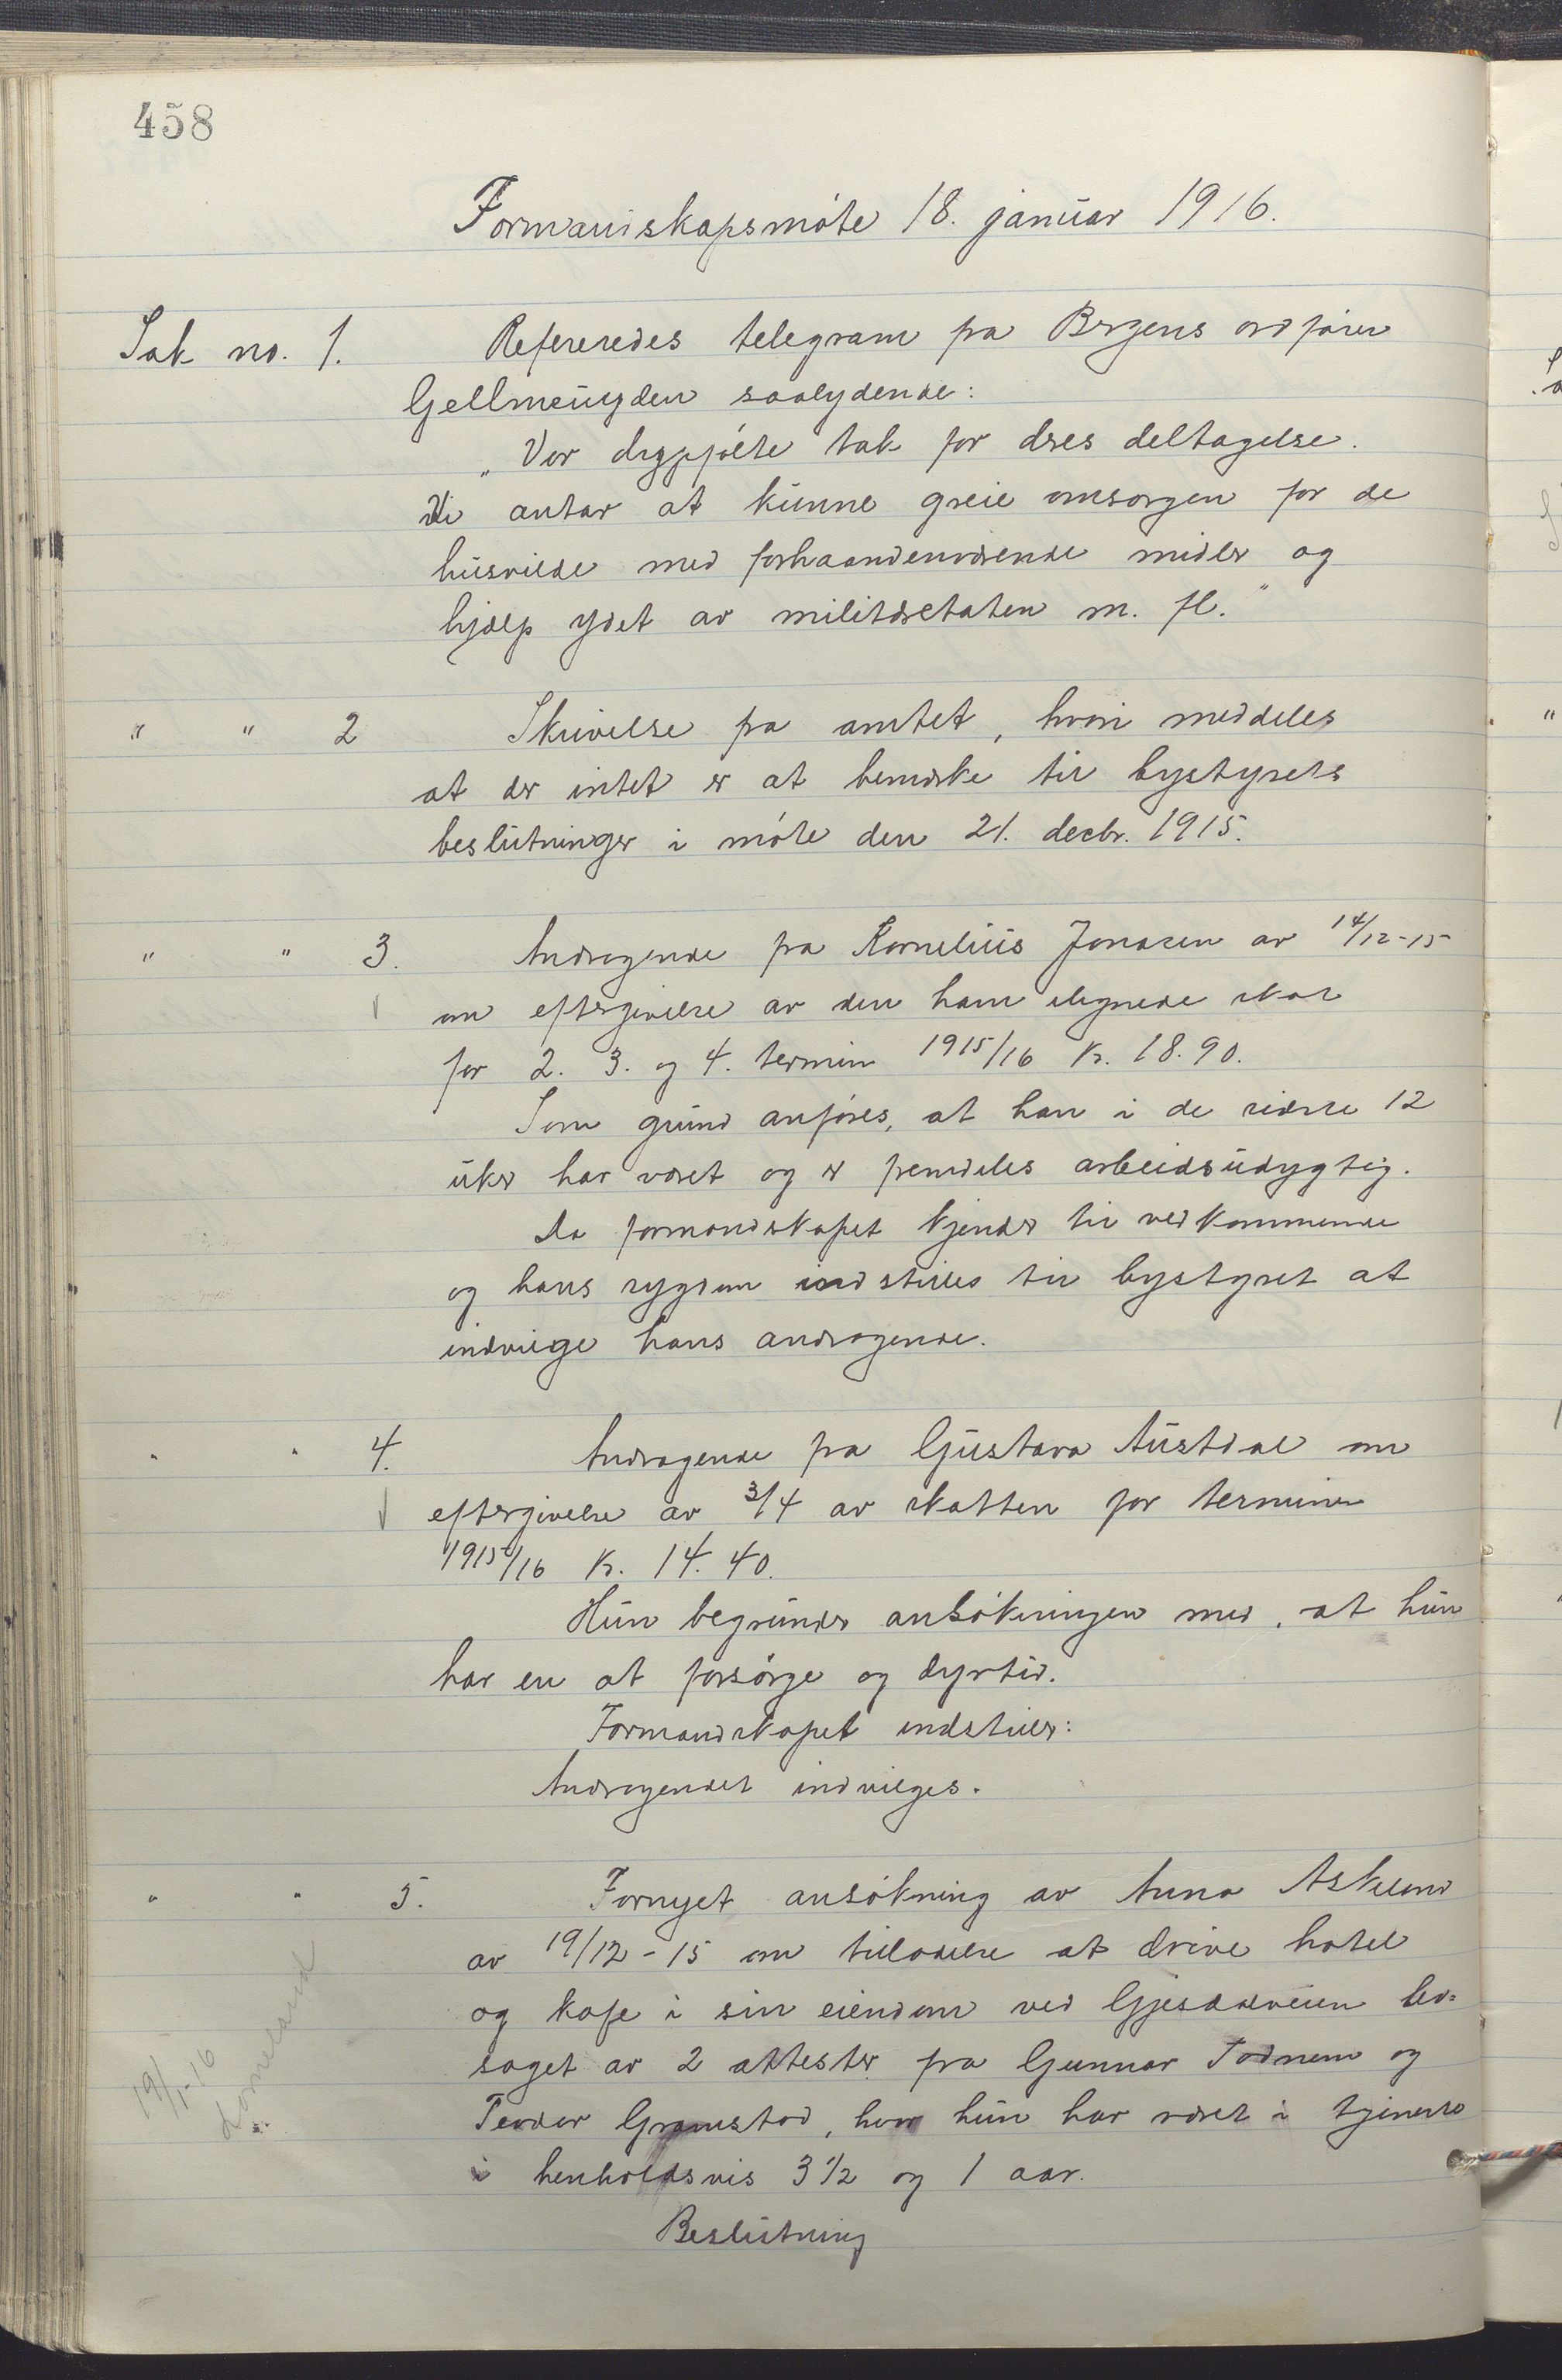 458
Formandskapsmøte 18. januar 1916.
Sak no. 1. Refereredes telegram fra Bergens ordfører
Gellmeuyden saalydende:
„Vor dypfølte tak for deres deltagelse.
Vi antar at kunne greie omsorgen for de
husvilde med forhaandenværende midler og
hjælp ydet av militæretaten m. fl."
" " 2 Skrivelse fra amtet, hvori meddeles
at der intet er at bemærke til bystyrets
beslutninger i møte den 21. decbr. 1915.
" " 3. Andragende fra Kornelius Jonasen av 14/12-15
om eftergivelse av den ham ilignede skat
for 2. 3. og 4. termin 1915/16 kr. 18.90.
Som grund anføres, at han i de sidste 12
uker har været og er fremdeles arbeidsudygtig.
Da formandskapet kjender til vedkommende
og hans sygdom indstilles til bystyret at
indvilge hans andragende.
" " 4. Andragende fra Gustava Austdal om
eftergivelse av 3/4 av skatten for terminen
1915/16 kr. 14.40.
Hun begrunder ansøkningen med, at hun
har en at forsørge og dyrtid.
Formandskapet indstiller:
Andragendet indvilges.
" " 5. Fornyet ansøkning av Anna Askelund
av 19/12-15 om tilladelse at drive hotel
og kafe i sin eiendom ved Gjesdalveien led-
saget av 2 attester fra Gunnar Todnem og
Teodor Gramstad, hvor hun har været i tjeneste
i henholdsvis 3 1/2 og 1 aar.
Beslutning
19/1-16